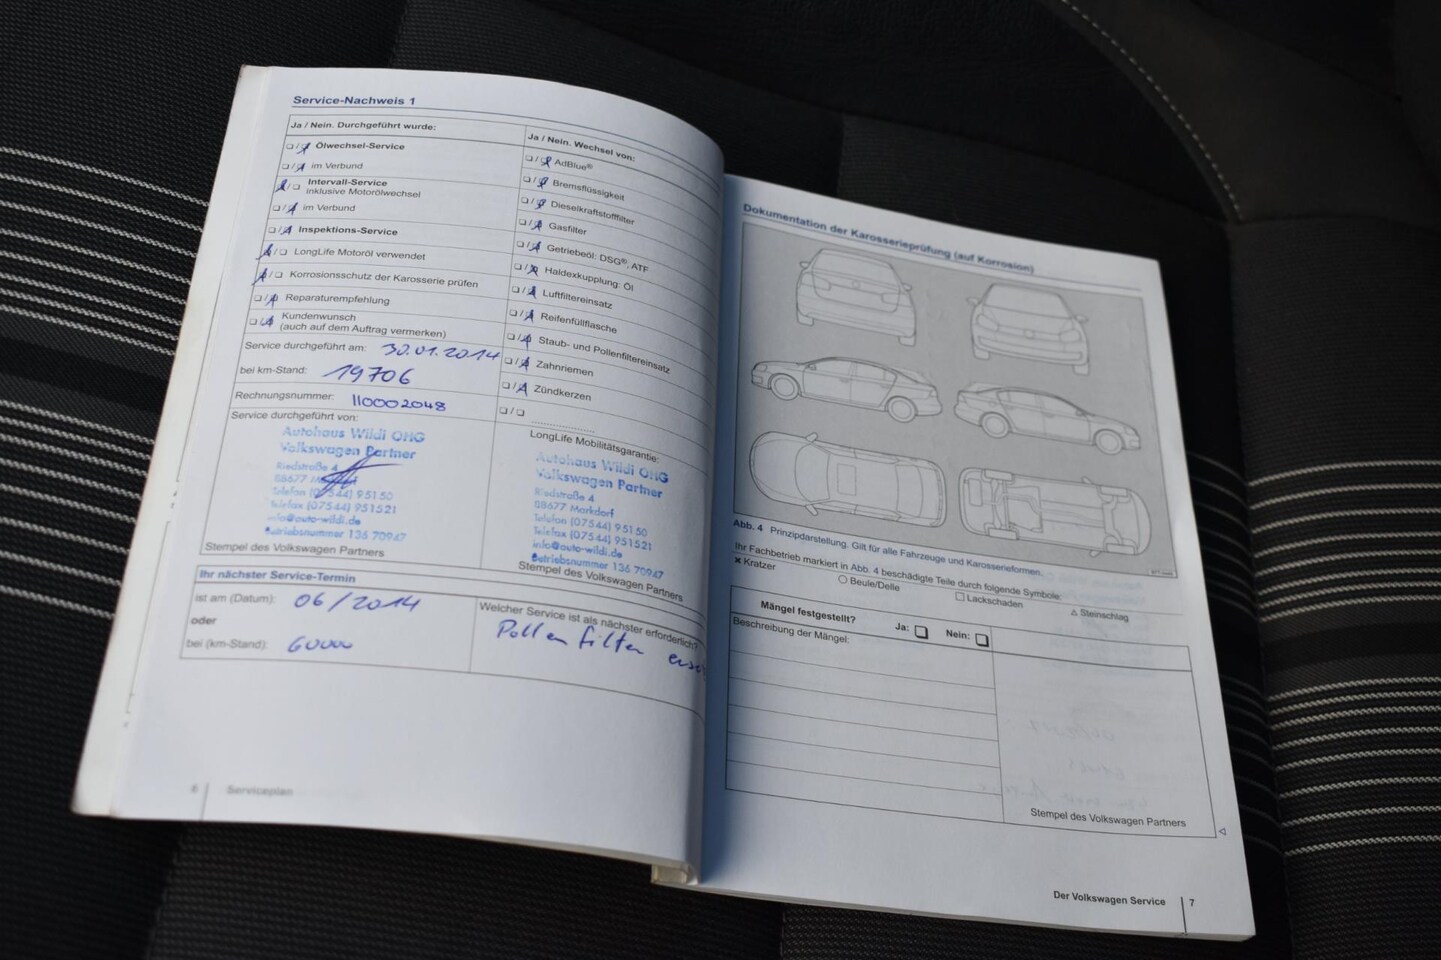 Service-Nachweis 1
Ja / Nein. Durchgeführt wurde:
Ölwechsel-Service
im Verbund
Intervall-Service
inklusive Motorölwechsel
im Verbund
Inspektions-Service
LongLife Motoröl verwendet
Korrosionsschutz der Karosserie prüfen
Reparaturempfehlung
Kundenwunsch
(auch auf dem Auftrag vermerken)
Service durchgeführt am: 30.01.2014
bei km-Stand: 19706
Rechnungsnummer: 110002048
Service durchgeführt von:
Autohaus Wildi OHG
Volkswagen Partner
Riedstraße 4
88677
Telefon (07544) 95150
Telefax (07544) 951521
info@auto-wildi.de
Betriebsnummer 136 70947
Stempel des Volkswagen Partners
Ja / Nein. Wechsel von:
AdBlue®
Bremsflüssigkeit
Dieselkraftstofffilter
Gasfilter
Getriebeöl: DSG®, ATF
Haldexkupplung: Öl
Luftfiltereinsatz
Reifenfüllflasche
Staub- und Pollenfiltereinsatz
Zahnriemen
Zündkerzen
LongLife Mobilitätsgarantie:
Autohaus Wildi OHG
Volkswagen Partner
Riedstraße 4
88677 Markdorf
Telefon (07544) 95150
Telefax (07544) 951521
info@auto-wildi.de
Betriebsnummer 136 70947
Stempel des Volkswagen Partners
Ihr nächster Service-Termin
ist am (Datum): 06/2014
oder
bei (km-Stand): 60000
Welcher Service ist als nächster erforderlich?
Pollenfilter
6 Serviceplan
Dokumentation der Karosserieprüfung (auf Korrosion)
Abb. 4 Prinzipdarstellung. Gilt für alle Fahrzeuge und Karosserieformen.
Ihr Fachbetrieb markiert in Abb. 4 beschädigte Teile durch folgende Symbole:
× Kratzer ○ Beule/Delle □ Lackschaden △ Steinschlag
Mängel festgestellt? Ja: Nein:
Beschreibung der Mängel:
Stempel des Volkswagen Partners
Der Volkswagen Service 7